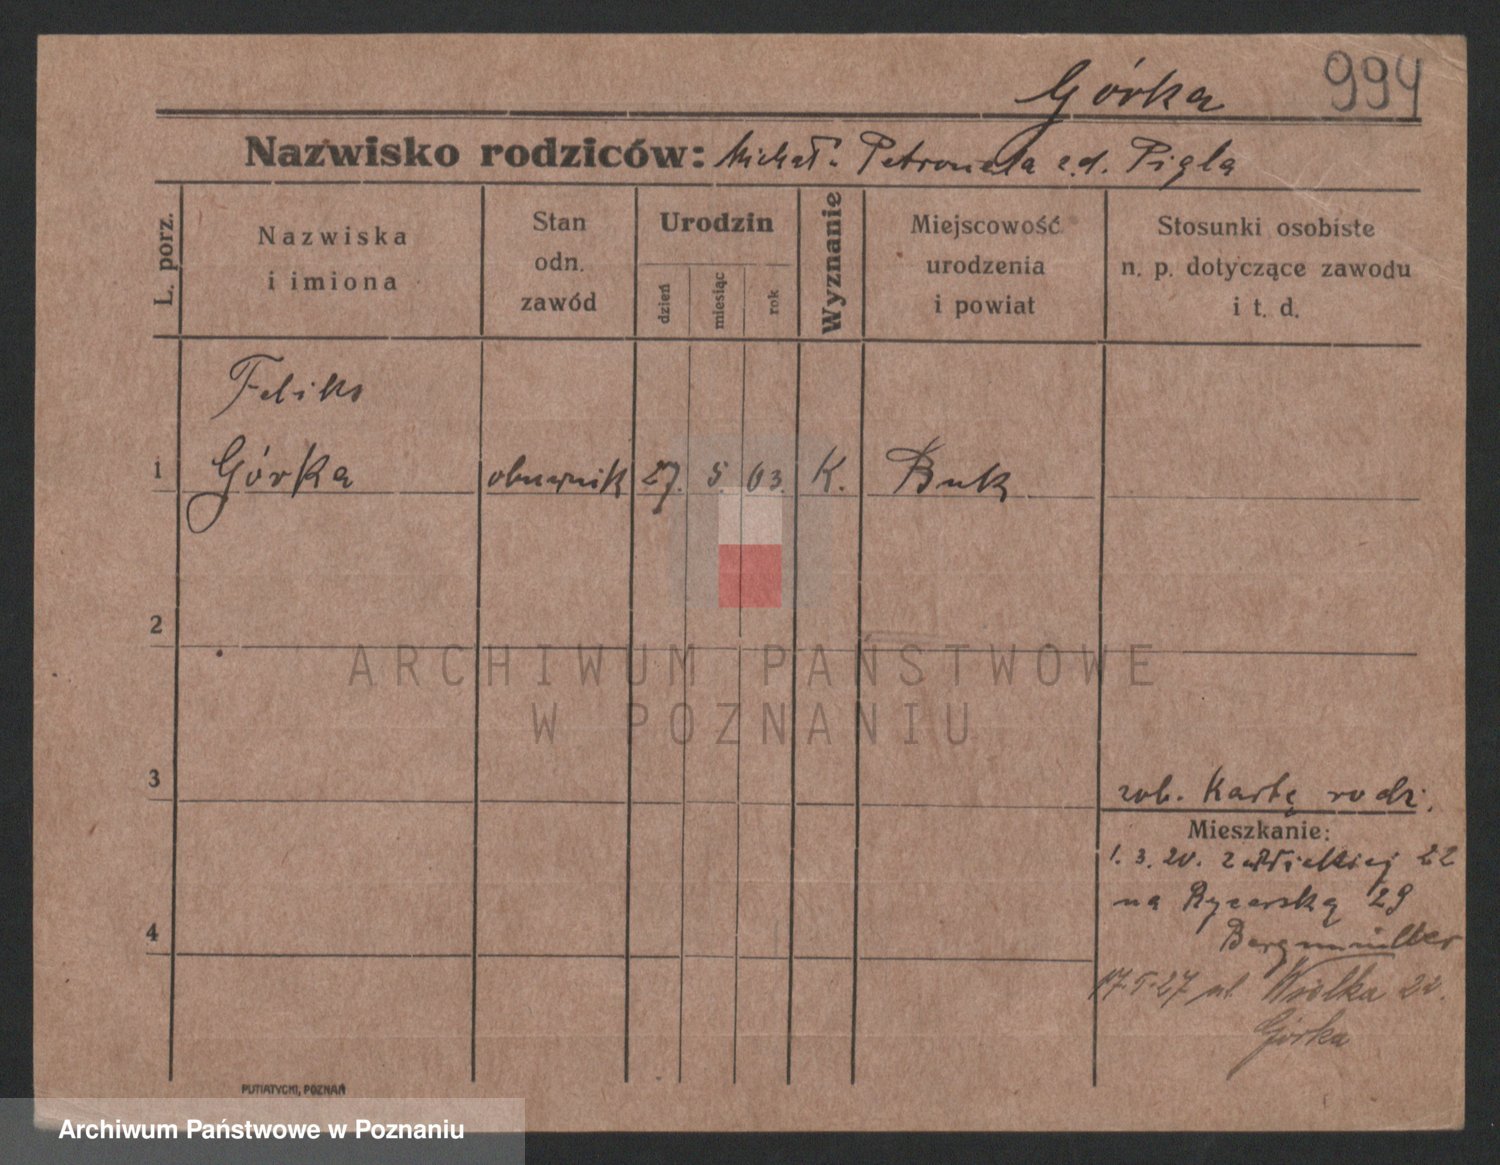 Górka 994
Nazwisko rodziców: Michał. Petronela z.d. Pigla
L. porz.
Nazwiska
i imiona
Stan
odn.
zawód
Urodzin
dzień
miesiąc
rok
Wyznanie
Miejscowość
urodzenia
i powiat
Stosunki osobiste
n. p. dotyczące zawodu
i t. d.
Feliks
1 Górka obuwnik 27. 5. 03. K. Buk
2
ARCHIWUM PAŃSTWOWE
W POZNANIU
3
zob. Kartę rodz.
Mieszkanie:
1. 3. 20. z Wielkiej 22
na Rycerską 29
4
17.5.27 ul. Wielka 22.
Górka
PUTIATYCKI, POZNAŃ
Archiwum Państwowe w Poznaniu